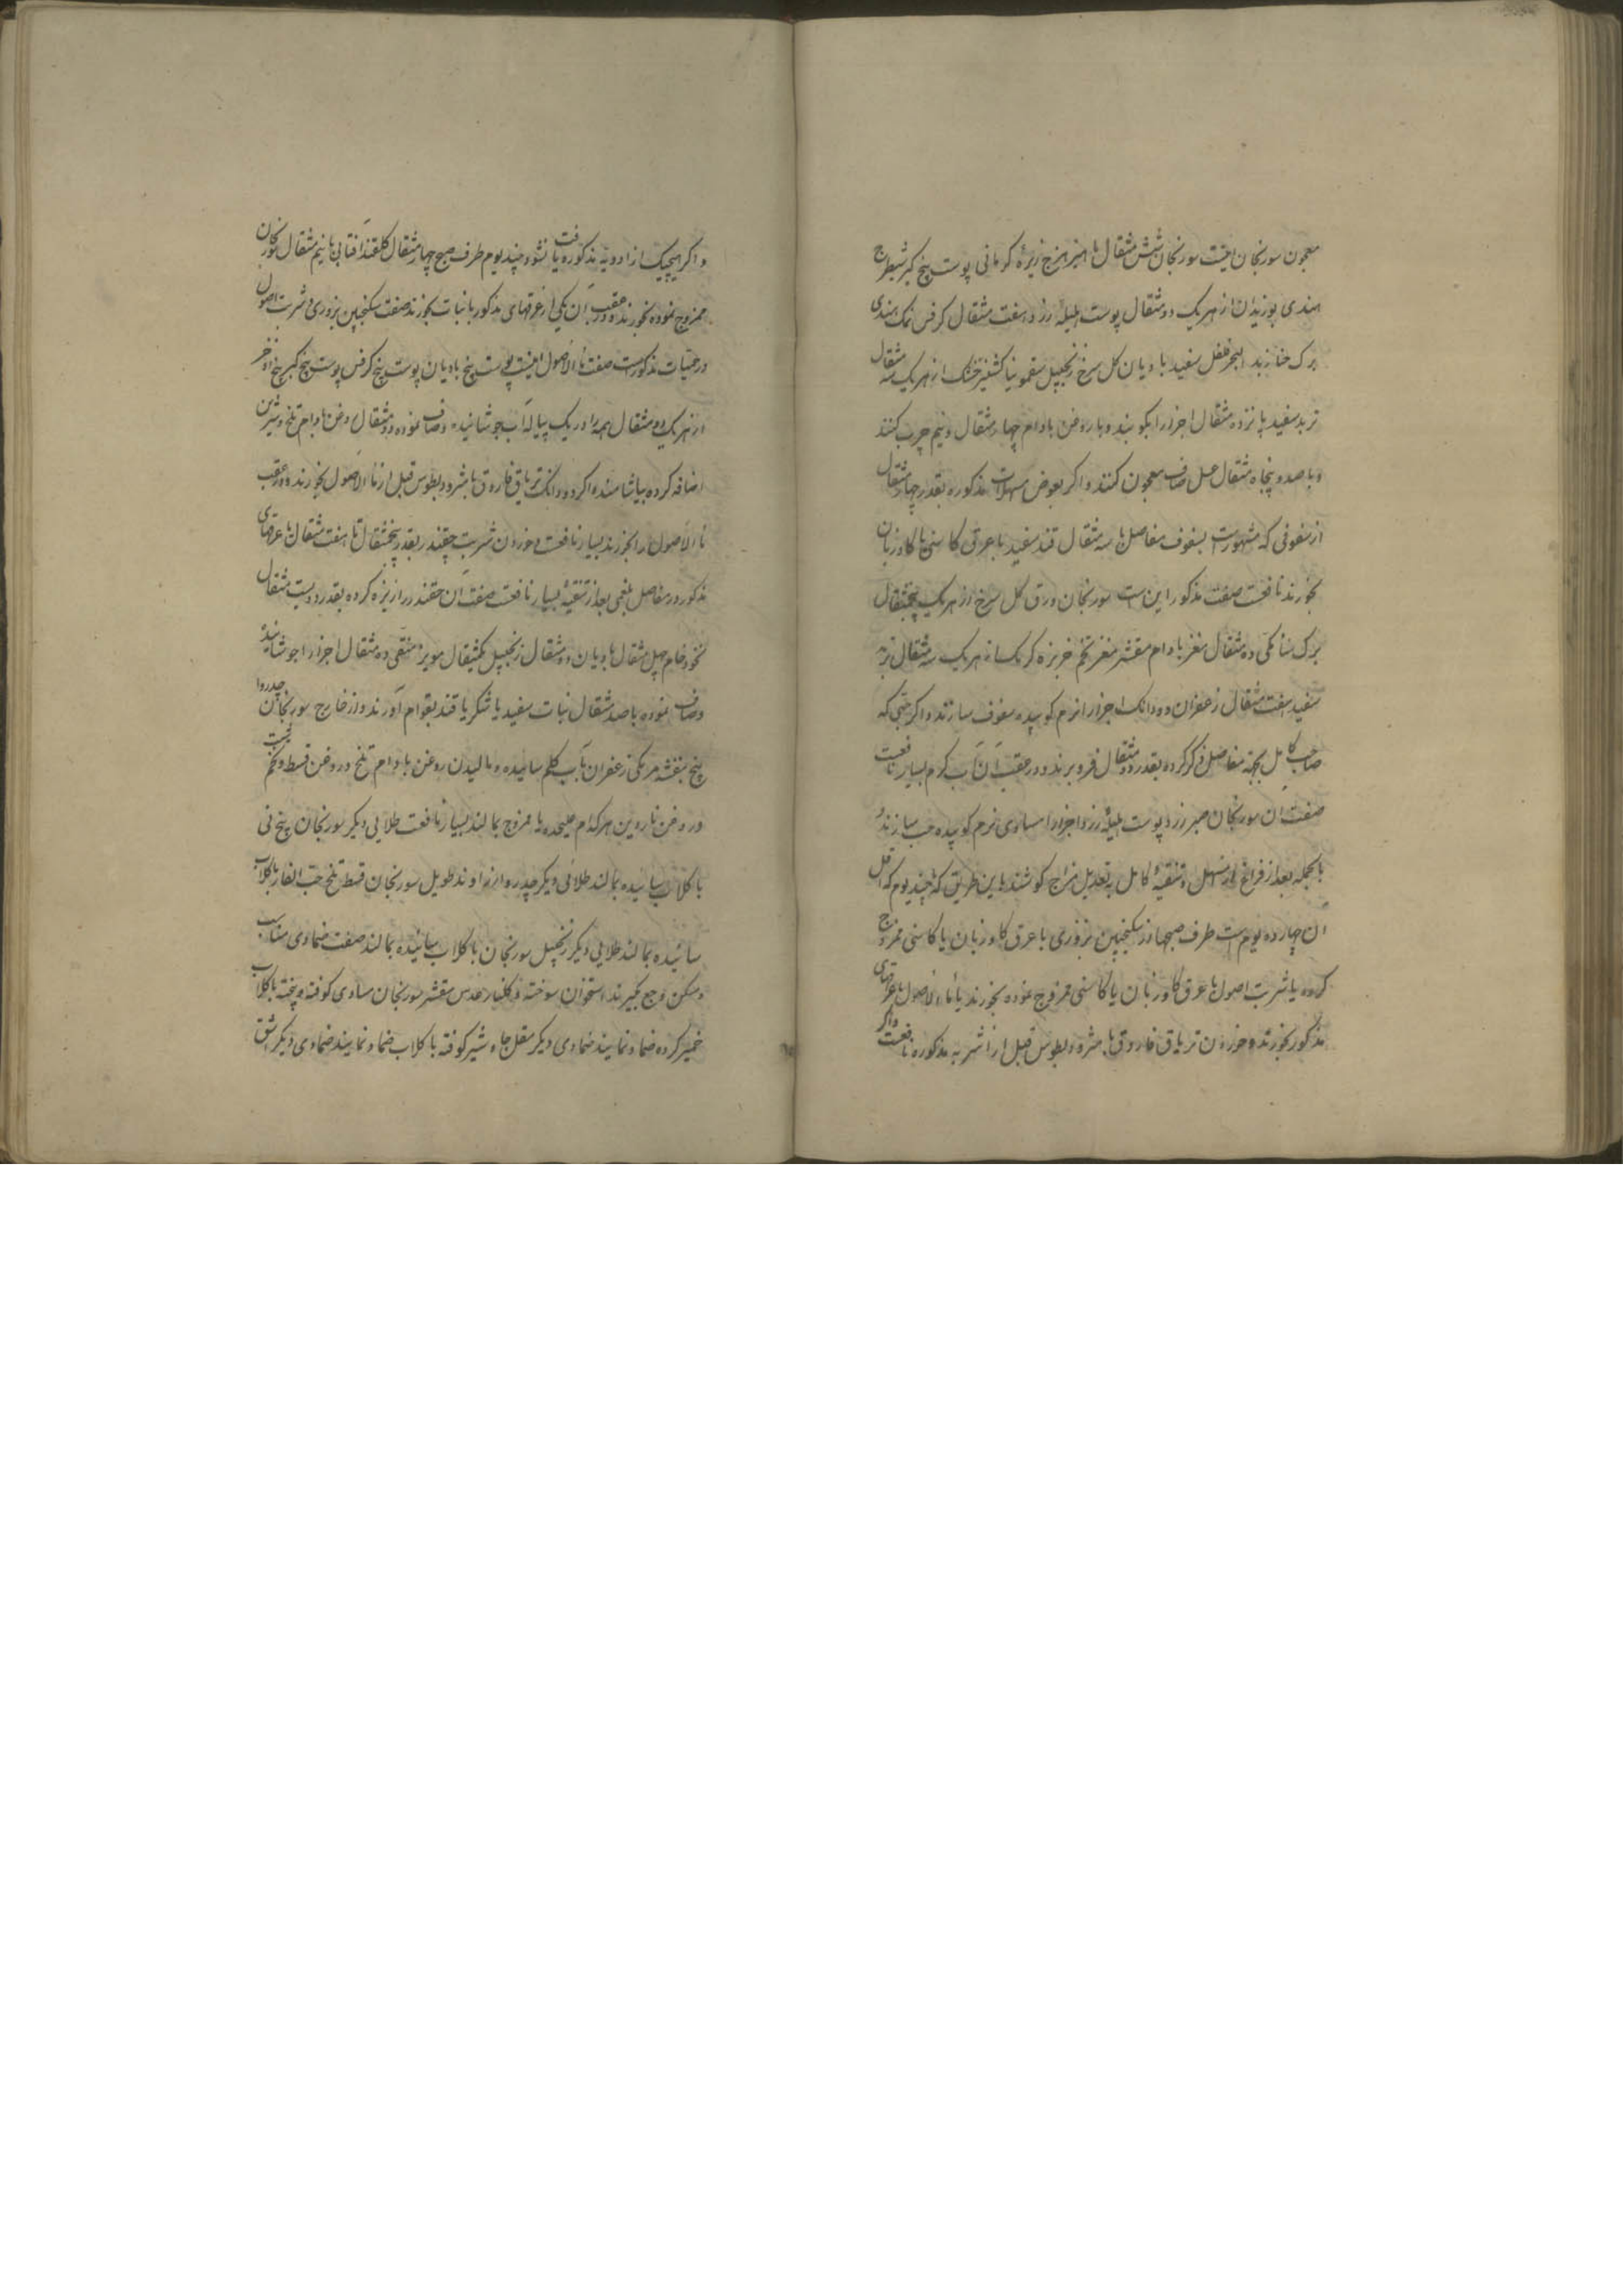 معجون سورنجان اینست سورنجان شش مثقال ماهیزهرج زیرهٔ کرمانی پوست بیخ کبر شیطرج
هندی بوزیدان از هر یک دو مثقال پوست هلیلهٔ زرد هفت مثقال کرفس نمک هندی
برک حنا زبد البحر فلفل سفید بادیان کل سرخ زنجبیل سقمونیا کشنیز خشک از هر یک سه مثقال
تربد سفید پانزده مثقال اجزا را بکوبند و با روغن بادام چهار مثقال و نیم چرب کنند
و با صد و پنجاه مثقال عسل صاف معجون کنند و اکر بعوض مسهلات مذکوره بقدر چهار مثقال
از سفوفی که مشهورست بسفوف مفاصل با سه مثقال قند سفید با عرق کاسنی یا کاوزبان
بخورند نافعست صفت مذکور این است سورنجان ورق کل سرخ از هر یک پنجمثقال
برک سنا مکی ده مثقال مغز بادام مقشر مغز تخم خربزه کرمک از هر یک سه مثقال تربد
سفید هفت مثقال زعفران دو دانک اجزا را نرم کوبیده سفوف سازند و اکر حبی که
صاحب کامل بجهة مفاصل ذکر کرده بقدر دو مثقال فرو برند و در عقب آن آب کرم بسیار نافعست
صفت آن سورنجان صبر زرد پوست هلیلهٔ زرد اجزا را مساوی نرم کوبیده حب سازند و
بالجمله بعد از فراغ از مسهل و تنقیهٔ کامل به تعدیل مزاج کوشند باین طریق که چند یوم که اقل
آن چهارده یوم است طرف صبحها از سکنجبین بزوری با عرق کاوزبان یا کاسنی ممزوج
کرده یا شربت اصول با عرق کاوزبان یا کاسنی ممزوج نموده بخورند یا ماء الاصول با عرقهای
مذکور بخورند و خوردن تریاق فاروق یا مثرودیطوس قبل از اشربه مذکوره نافعست و اکر
و اکر هیچیک از ادویهٔ مذکوره یافت نشود چند یوم طرف صبح چهار مثقال کلقند آفتابی با نیم مثقال سورنجان
ممزوج نموده بخورند و در عقب آن یکی از عرقهای مذکور با نبات بخورند صفت سکنجبین بزوری و شربت اصول
در حمیات مذکورست صفت ماء الاصول اینست پوست بیخ بادیان پوست بیخ کرفس پوست بیخ کبر بیخ اذخر
از هر یک دو مثقال همه را در یک پیاله آب جوشانیده و صاف نموده دو مثقال روغن بادام تلخ و شیرین
اضافه کرده بیاشامند و اکر دو دانک تریاق فاروق یا مثرودیطوس قبل از ماء الاصول بخورند و در عقب
ماء الاصول را بخورند بسیار نافعست و خوردن شربت چقندر بقدر پنجمثقال تا هفت مثقال با عرقهای
مذکور در مفاصل بلغمی بعد از تنقیه بسیار نافعست صفت آن چقندر را ریزه کرده بقدر دویست مثقال
نخود خام چهل مثقال بادیان دو مثقال زنجبیل یکمثقال مویز منقی ده مثقال اجزا را جوشانیده
و صاف نموده با صد مثقال نبات سفید یا شکر یا قند بقوام آورند و از خارج سورنجان جدروا
بیخ بنفشه مر مکی زعفران بآب کلم سائیده و مالیدن روغن بادام تلخ و روغن قسط و تخم
و روغن ناردین هر کدام علیحده یا ممزوج بمالند بسیار نافعست طلایی دیکر سورنجان بیخ نی
با کلاب سائیده بمالند طلائی دیکر جدروا زراوند طویل سورنجان قسط تلخ حب الغار با کلاب
سائیده بمالند طلایی دیکر زنجبیل سورنجان با کلاب سائیده بمالند صفت ضمادی مناسب
و مسکن وجع بکیرند استخوان سوخته و کلنار عدس مقشر سورنجان مساوی کوفته و پخته با کلاب
خمیر کرده ضماد نمایند ضمادی دیکر مقل جاوشیر کوفته با کلاب ضماد نمایند ضمادی دیکر اشق